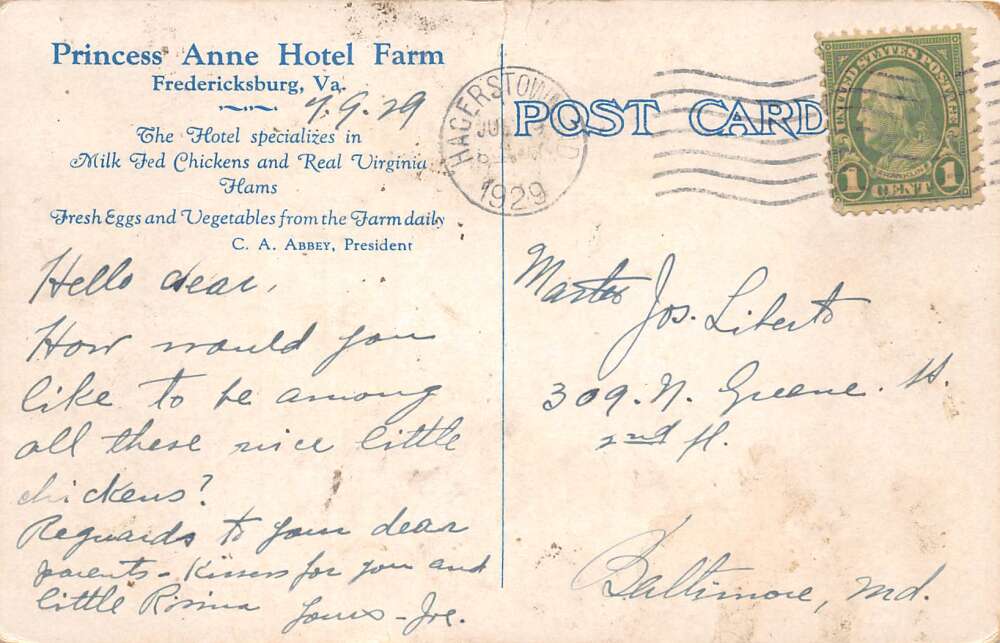 Princess Anne Hotel Farm
Fredericksburg, Va.
7.9.29
The Hotel specializes in
Milk Fed Chickens and Real Virginia
Hams
Fresh Eggs and Vegetables from the Farm daily
C. A. ABBEY, President
Hello dear,
How would you
like to be among
all these nice little
chickens?
Reguards to your dear
parents - Kisses for you and
little Rosina
Yours - Joe.
POST CARD
HAGERSTOWN
1929
UNITED STATES POSTAGE
FRANKLIN
1 CENT 1
Master Jos. Liberto
309. N. Greene. St.
2nd fl.
Baltimore, Md.